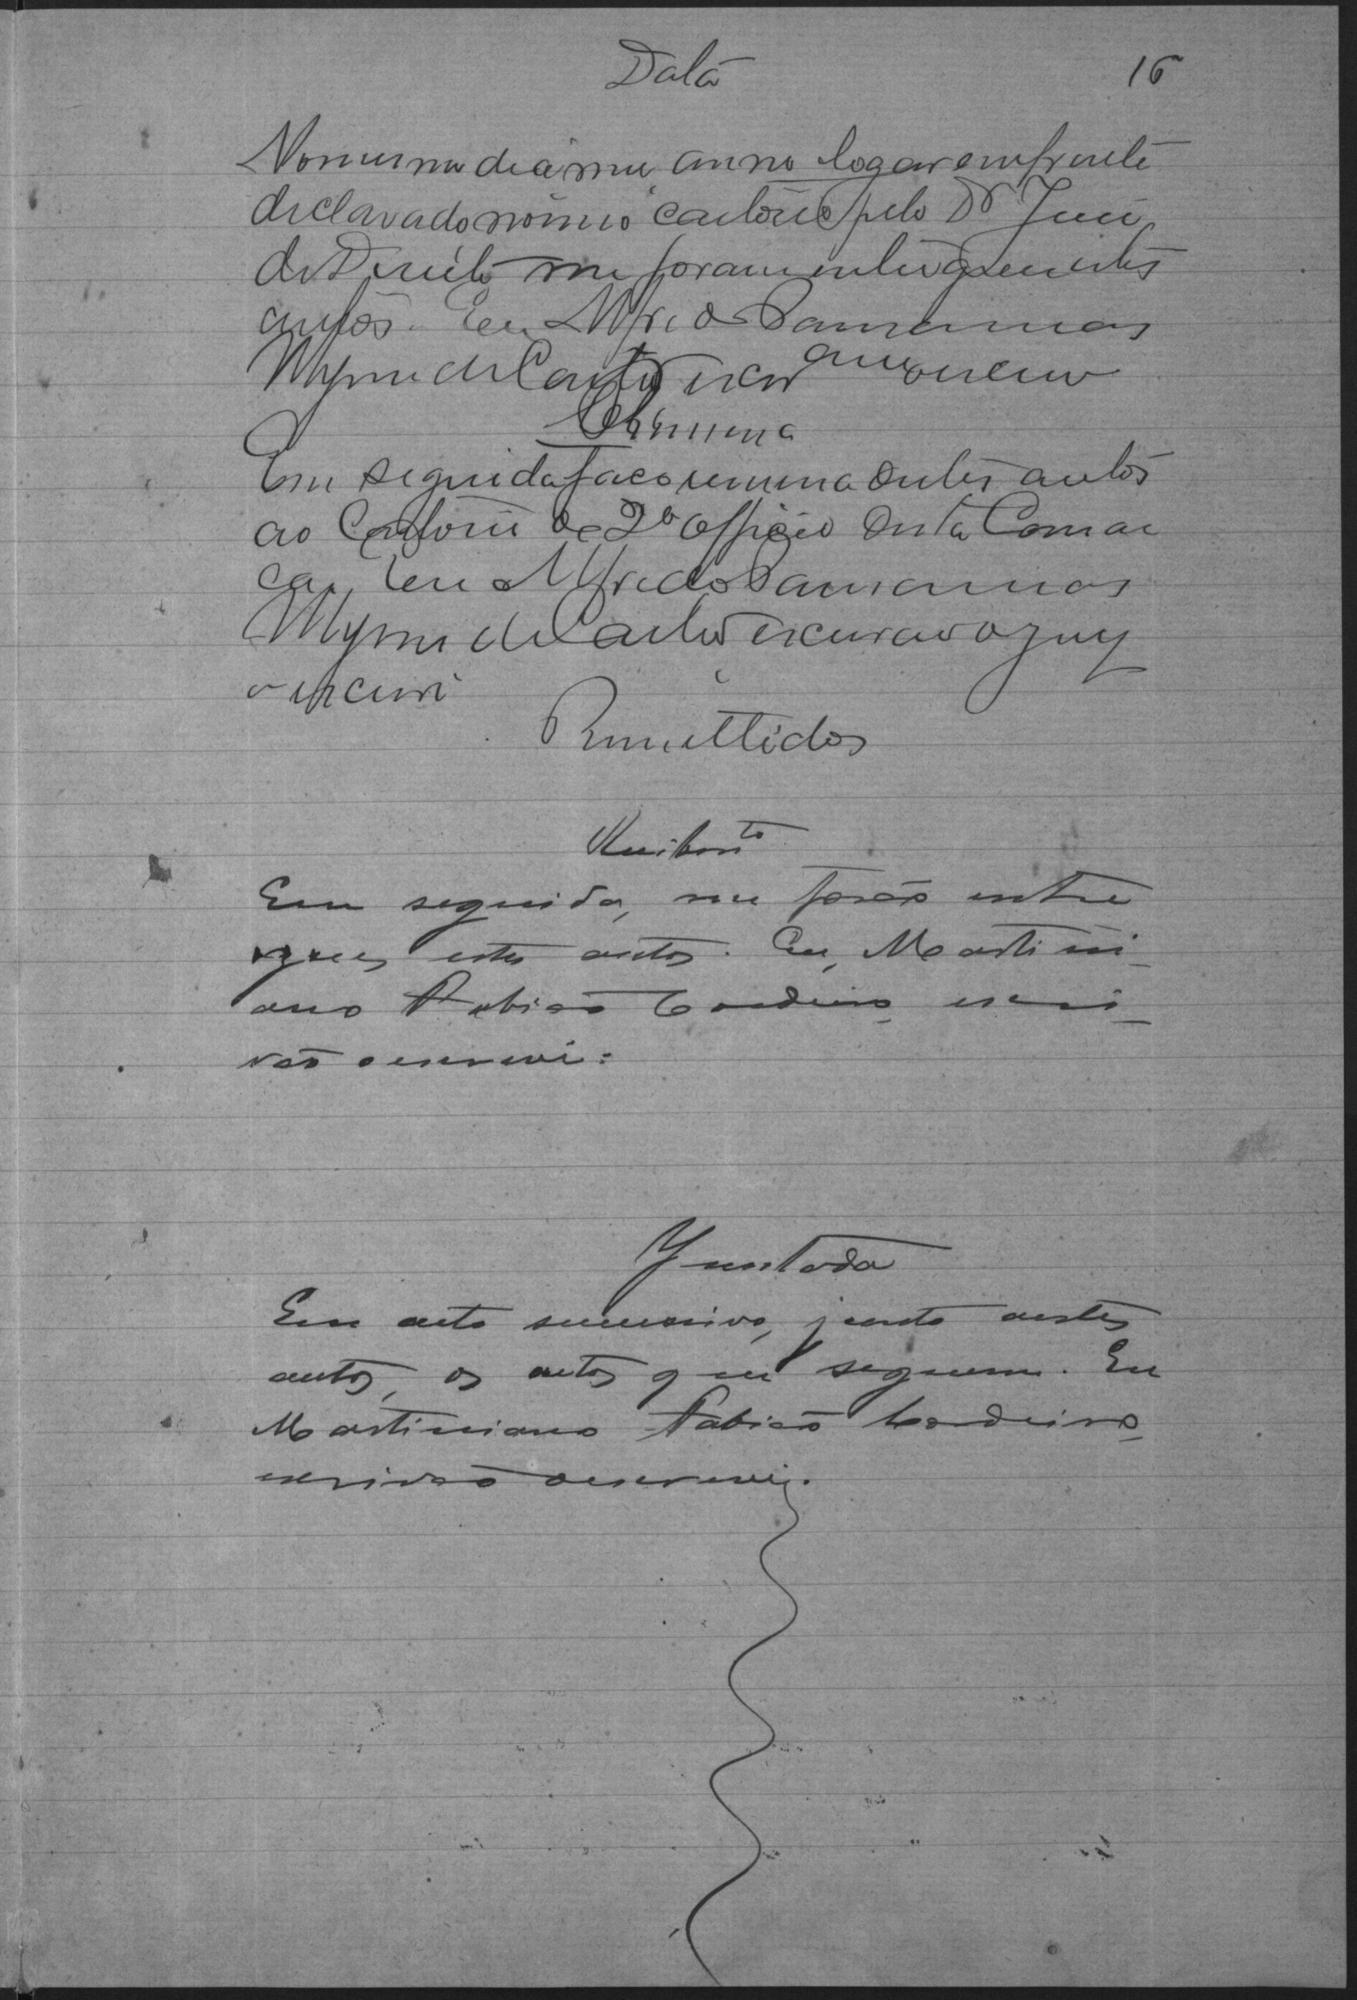 Data
16
No mesmo dia mez anno logar em frente
declarado no meu cartorio pelo Dr Juiz
de Direito me foram entregues estes
autos. Eu Alfredo
de Castro escr que escrevo
Remessa
Em seguida faço remessa destes autos
ao Cartorio do 2º officio desta Comar
ca, Eu Alfredo
de Castro escrivão q
o escrevi
Remettidos
Recibimto
Em seguida, me forão entre
gues estes autos. Eu, Martini_
ano Fabião Cordeiro, escri_
vão o escrevi:
Juntada
Em acto successivo, junto a estes
autos, os autos que seguem. Eu
Martiniano Fabião Cordeiro,
escrivão o escrevi.